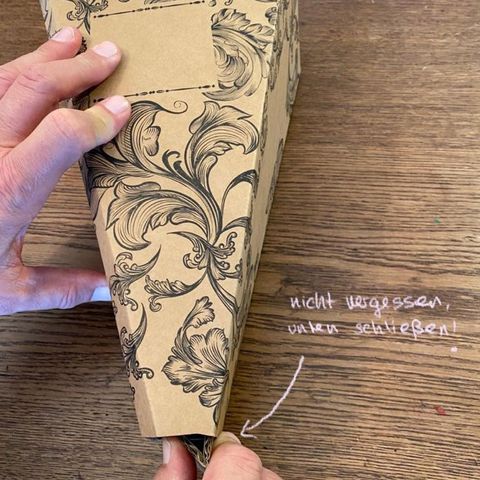 nicht vergessen,
unten schließen!